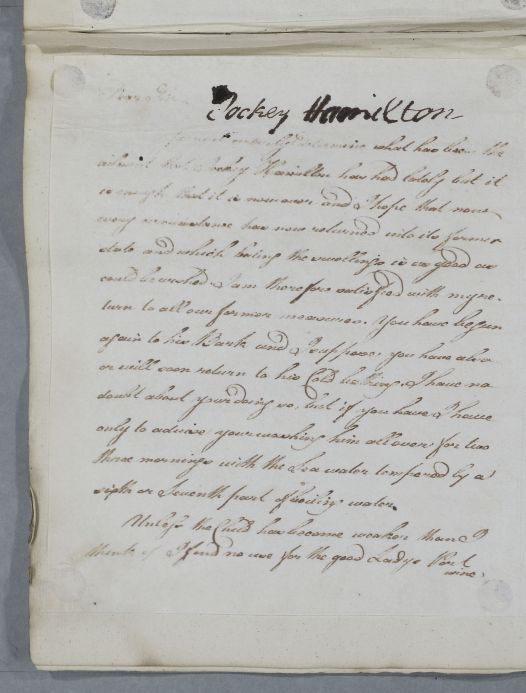 Jockey Hamilton
what has been the
ailment that Jocky Hamilton has had lately but it
is enough that it is now over and I hope that now
every circumstance has now returned into its former
state and which bating the swellings is as good as
could be wished. I am therefore satisfied with my re-
turn to all our former measures. You have begun
again to his Bark and I suppose you have also
or will soon return to his Cold bathing I have no
doubt about your doing so, but if you have I have
only to advise your washing him all over for two
three mornings with the Sea water tempered by a
sixth or Seventh part of boiling water.
Unless the Child has become weaker than I
think of I find no use for the good Ladys Port
wine.